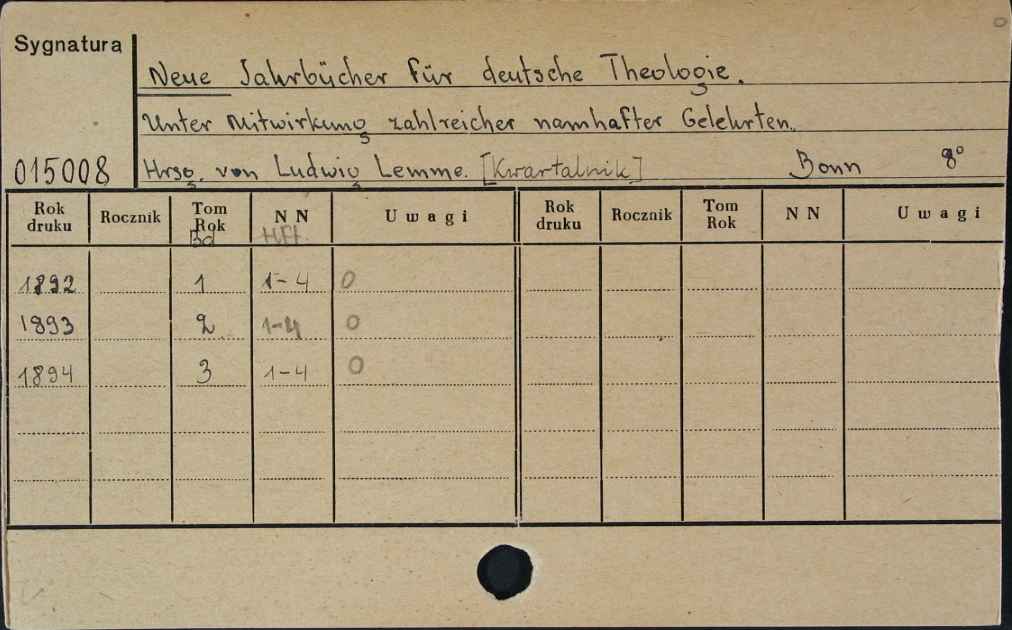 Sygnatura
Neue Jahrbücher für deutsche Theologie.
Unter Mitwirkung zahlreicher namhafter Gelehrten.
015008 Hrsg. von Ludwig Lemme. [Kwartalnik] Bonn 8°
Rok druku Rocznik Tom Rok N N Uwagi Rok druku Rocznik Tom Rok N N Uwagi
Bd Hft.
1892 1 1-4 0
1893 2 1-4 0
1894 3 1-4 0